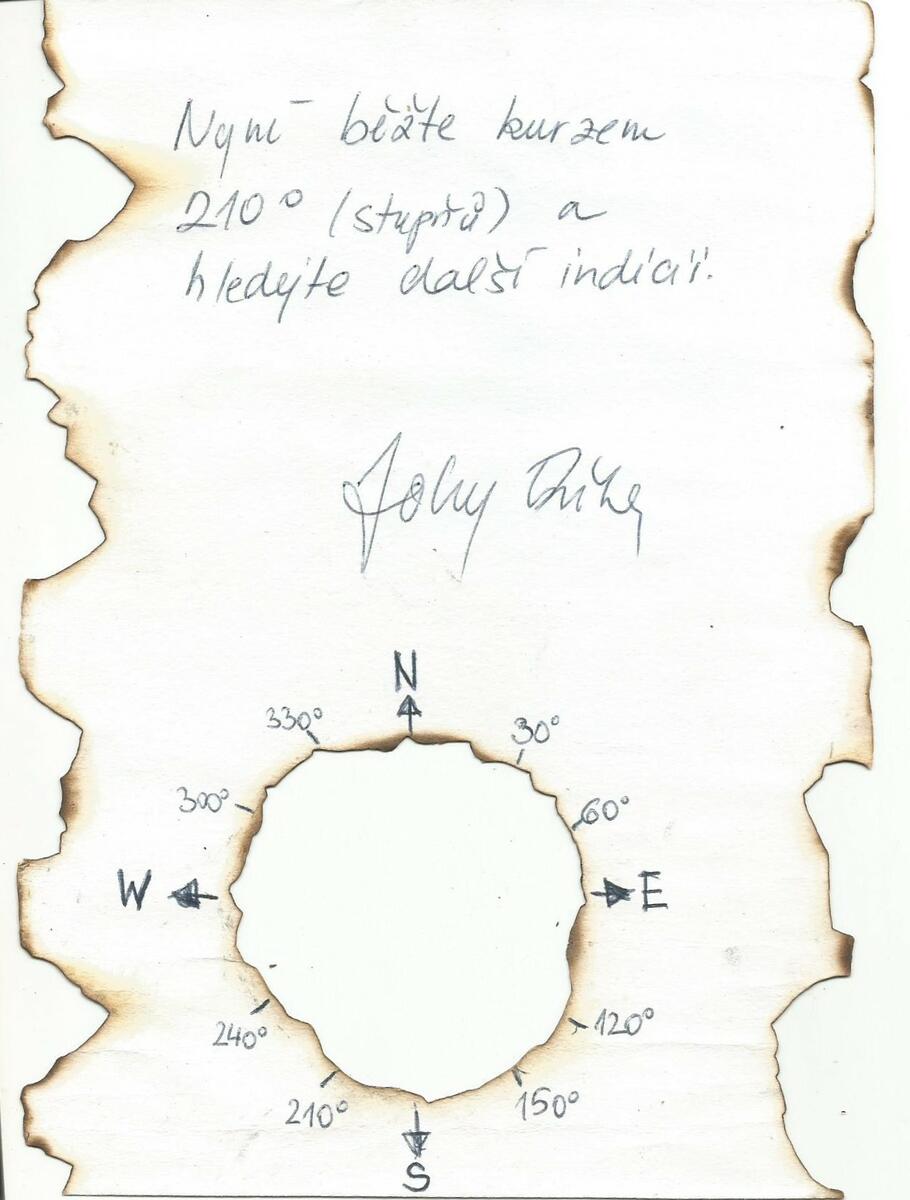 Nyní běžte kurzem
210° (stupňů) a
hledejte další indícii.
N
330°
30°
300°
60°
W
E
240°
120°
210°
150°
S